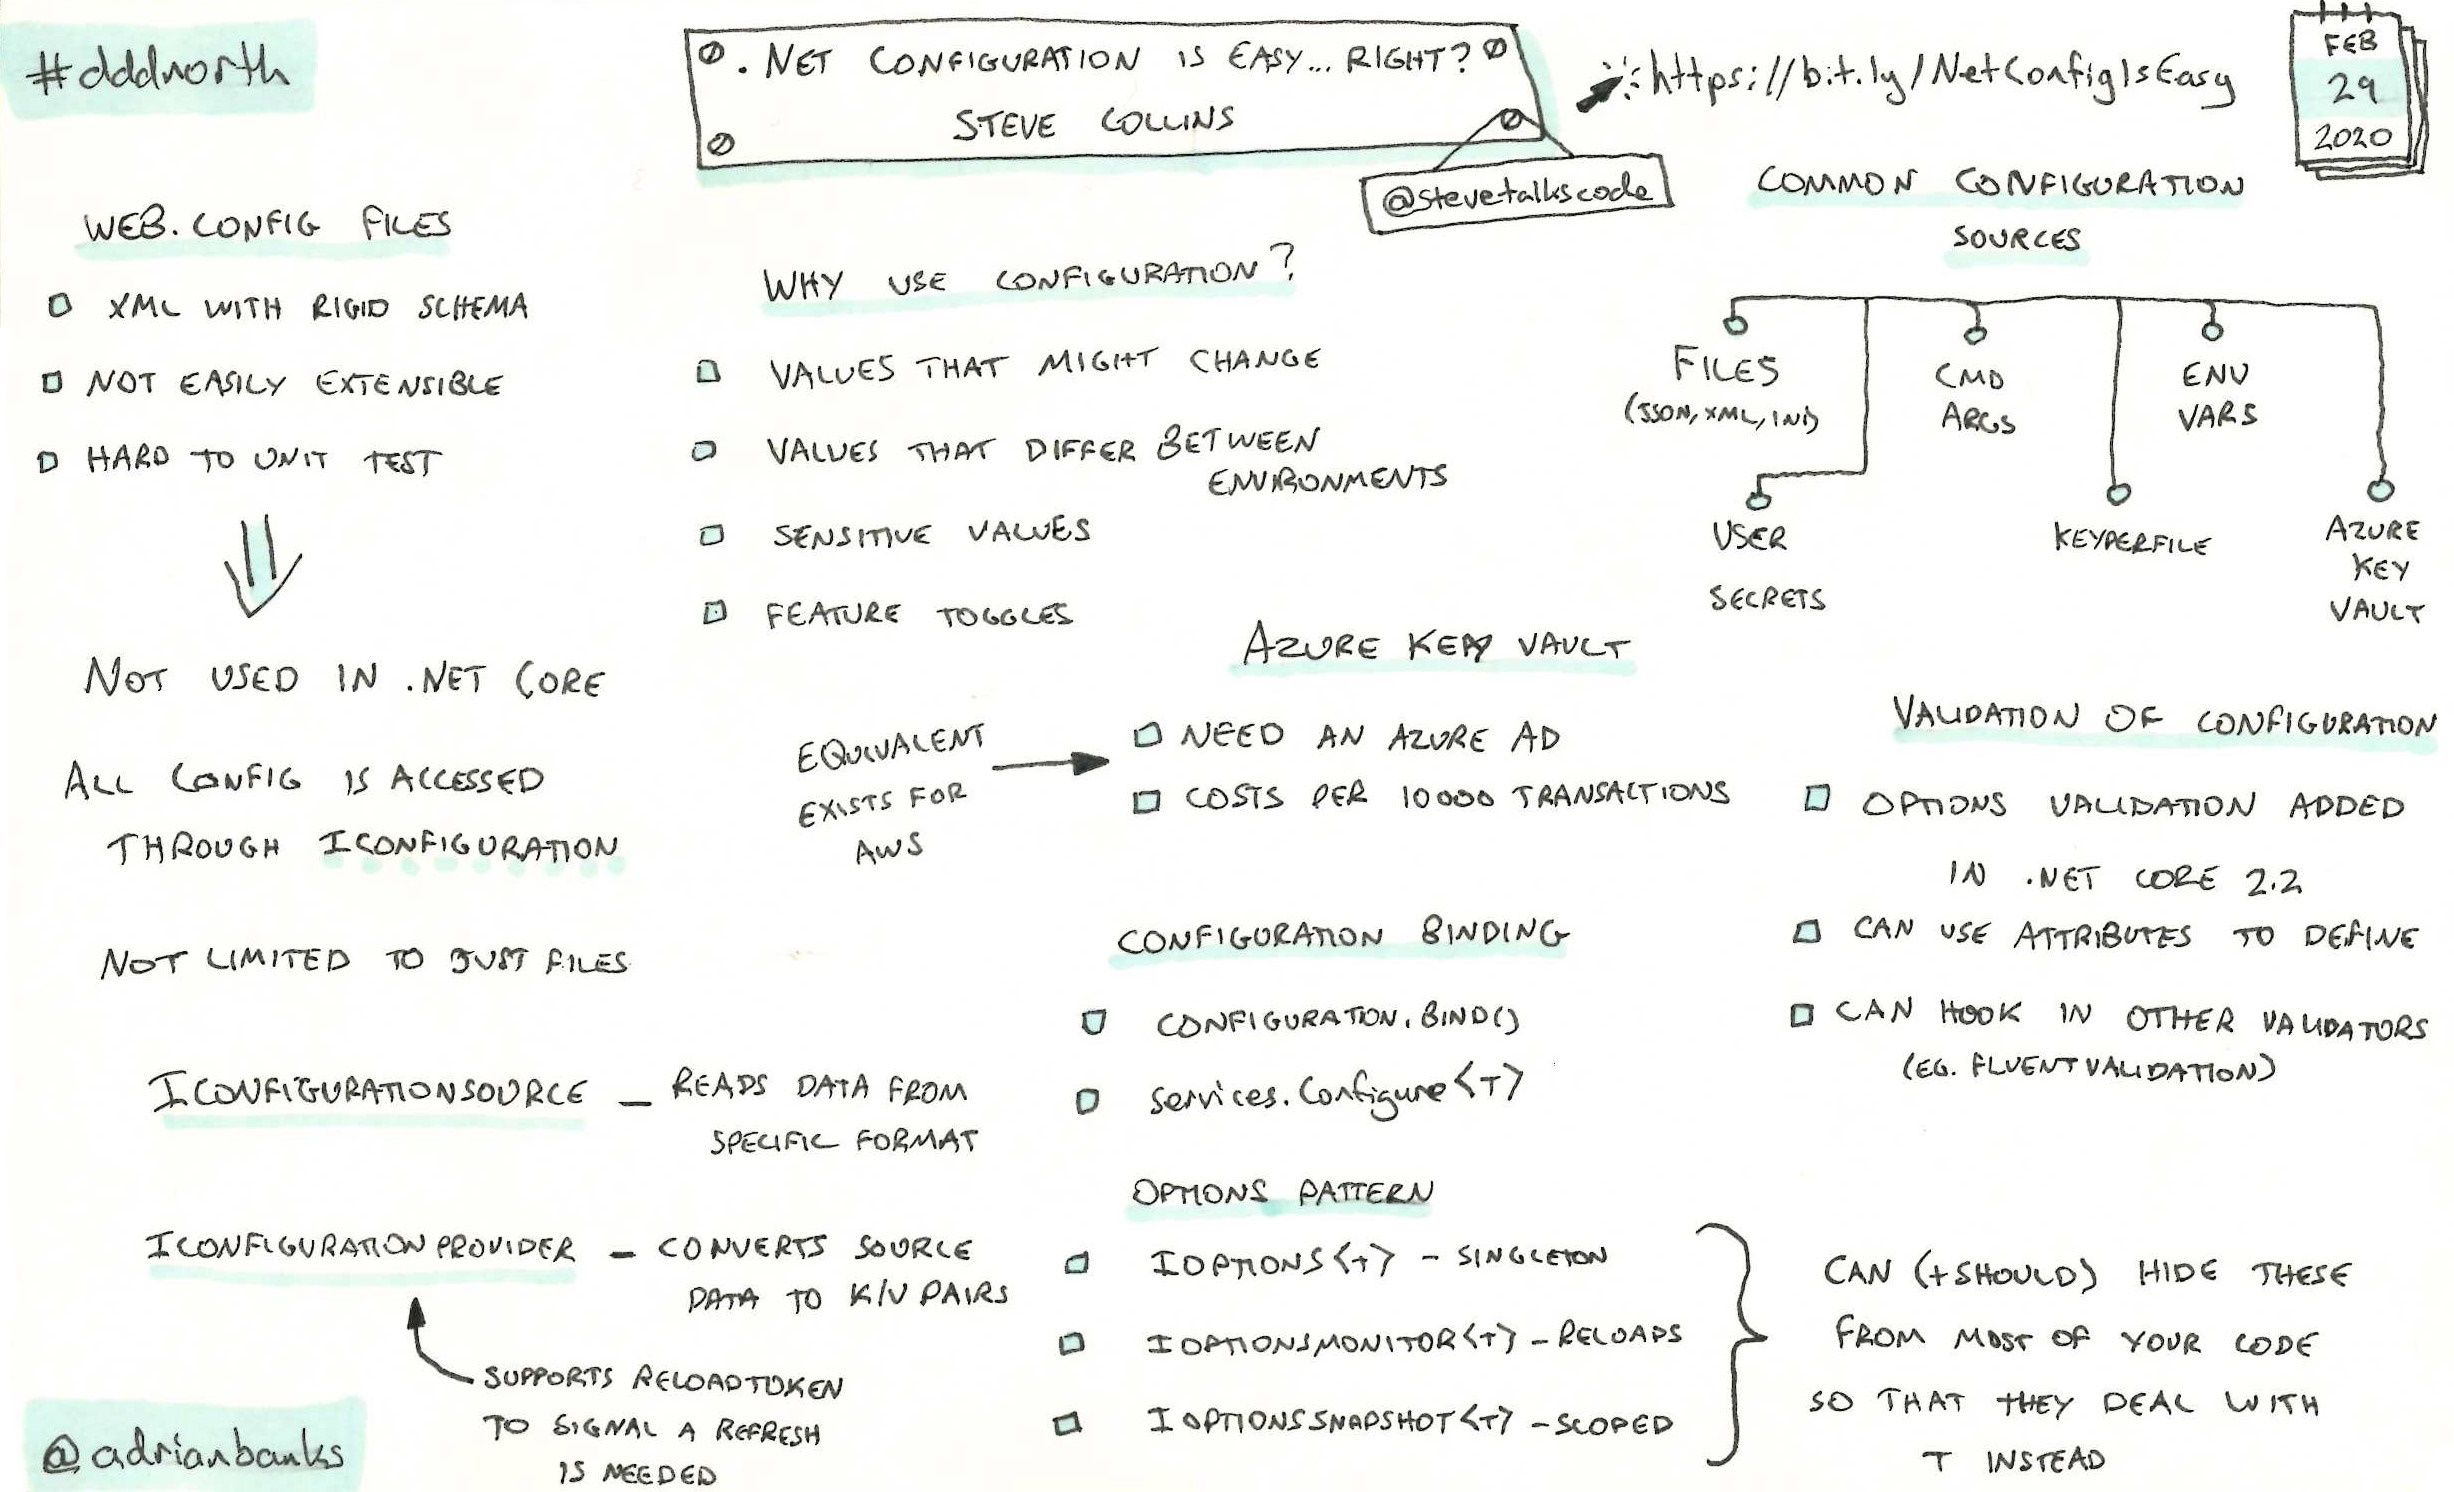 #dddnorth
.NET CONFIGURATION IS EASY... RIGHT?
STEVE COLLINS
@stevetalkscode
https://bit.ly/NetConfigIsEasy
FEB
29
2020
WEB.CONFIG FILES
XML WITH RIGID SCHEMA
NOT EASILY EXTENSIBLE
HARD TO UNIT TEST
NOT USED IN .NET CORE
ALL CONFIG IS ACCESSED
THROUGH ICONFIGURATION
NOT LIMITED TO JUST FILES
ICONFIGURATIONSOURCE - READS DATA FROM
SPECIFIC FORMAT
ICONFIGURATIONPROVIDER - CONVERTS SOURCE
DATA TO K/V PAIRS
SUPPORTS RELOADTOKEN
TO SIGNAL A REFRESH
IS NEEDED
@adrianbanks
WHY USE CONFIGURATION?
VALUES THAT MIGHT CHANGE
VALUES THAT DIFFER BETWEEN
ENVIRONMENTS
SENSITIVE VALUES
FEATURE TOGGLES
AZURE KEY VAULT
EQUIVALENT
EXISTS FOR
AWS
NEED AN AZURE AD
COSTS PER 10000 TRANSACTIONS
CONFIGURATION BINDING
CONFIGURATION.BIND()
services.Configure<T>
OPTIONS PATTERN
IOPTIONS<T> - SINGLETON
IOPTIONSMONITOR<T> - RELOADS
IOPTIONSSNAPSHOT<T> - SCOPED
CAN (+SHOULD) HIDE THESE
FROM MOST OF YOUR CODE
SO THAT THEY DEAL WITH
T INSTEAD
COMMON CONFIGURATION
SOURCES
FILES
(JSON, XML, INI)
CMD
ARGS
ENV
VARS
USER
SECRETS
KEYPERFILE
AZURE
KEY
VAULT
VALIDATION OF CONFIGURATION
OPTIONS VALIDATION ADDED
IN .NET CORE 2.2
CAN USE ATTRIBUTES TO DEFINE
CAN HOOK IN OTHER VALIDATORS
(EG. FLUENTVALIDATION)